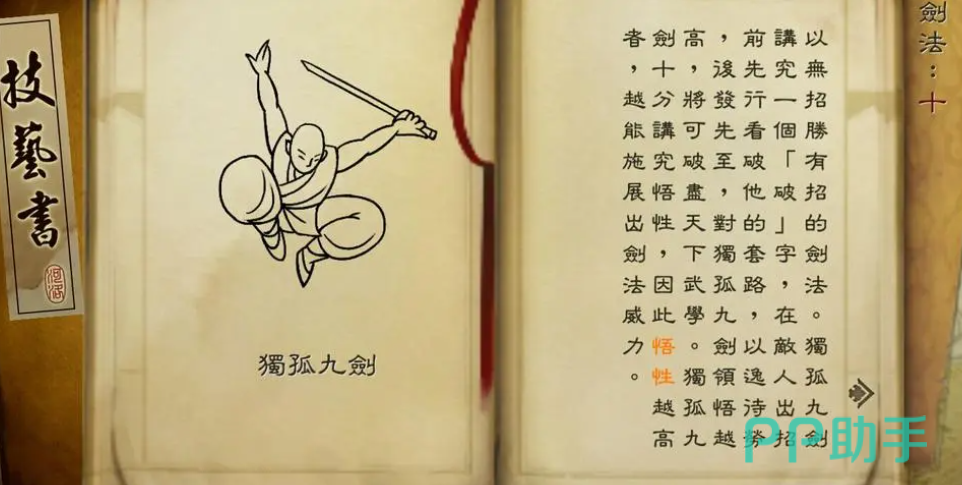 劍法：十
以無招勝有招的劍法。獨孤九劍
講究一個「破」字，在敵人出招
前先行看破他的套路，以逸待勞
，後發先至，對獨孤九劍領悟越
高，將可破盡天下武學。獨孤九
劍十分講究悟性，因此悟性越高
者，越能施展出劍法威力。
獨孤九劍
技藝書
河洛
PP助手